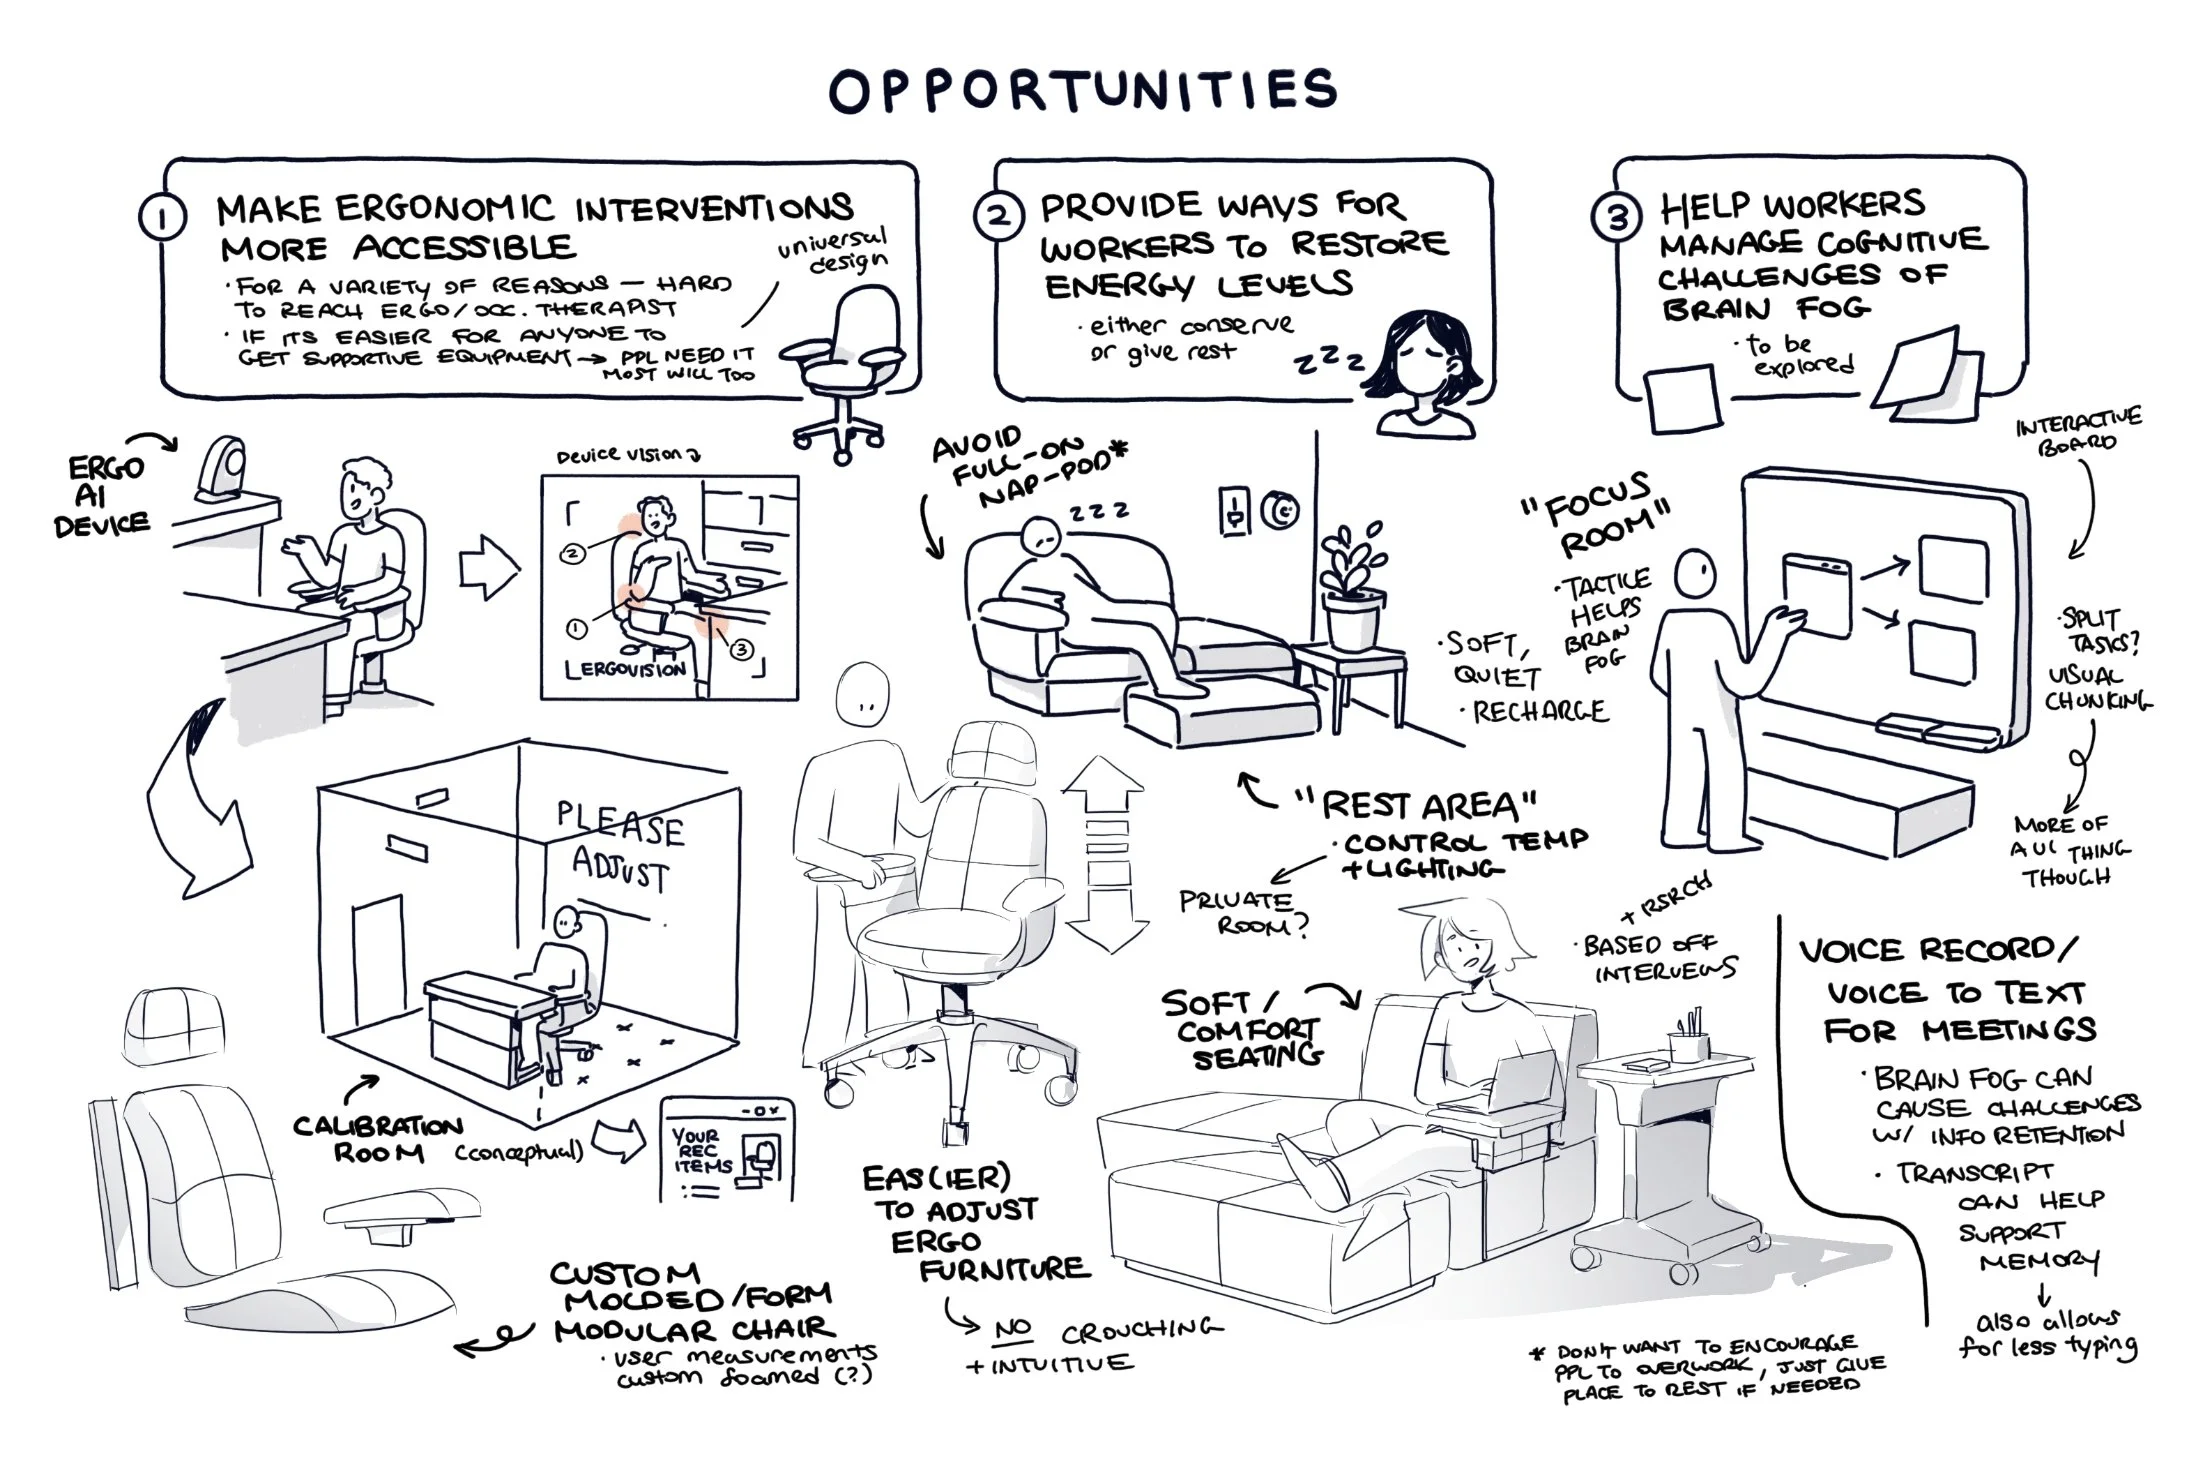 OPPORTUNITIES
1
MAKE ERGONOMIC INTERVENTIONS
MORE ACCESSIBLE
· FOR A VARIETY OF REASONS — HARD
TO REACH ERGO/OCC. THERAPIST
· IF ITS EASIER FOR ANYONE TO
GET SUPPORTIVE EQUIPMENT → PPL NEED IT
MOST WILL TOO
universal
design
2
PROVIDE WAYS FOR
WORKERS TO RESTORE
ENERGY LEVELS
· either conserve
or give rest
z z z
3
HELP WORKERS
MANAGE COGNITIVE
CHALLENGES OF
BRAIN FOG
· to be
explored
ERGO
AI
DEVICE
Device vision
2
1
3
ERGOVISION
PLEASE
ADJUST
CALIBRATION
ROOM (conceptual)
YOUR
REC
ITEMS
- O X
CUSTOM
MOLDED/FORM
MODULAR CHAIR
· user measurements
custom foamed (?)
EAS(IER)
TO ADJUST
ERGO
FURNITURE
→ NO CROUCHING
+ INTUITIVE
AVOID
FULL-ON
NAP-POD*
z z z
· SOFT,
QUIET
· RECHARGE
"REST AREA"
· CONTROL TEMP
+ LIGHTING
PRIVATE
ROOM?
SOFT/
COMFORT
SEATING
* DON'T WANT TO ENCOURAGE
PPL TO OVERWORK, JUST GIVE
PLACE TO REST IF NEEDED
"FOCUS
ROOM"
· TACTILE
HELPS
BRAIN
FOG
INTERACTIVE
BOARD
· SPLIT
TASKS?
VISUAL
CHUNKING
MORE OF
A THING
THOUGH
+ RSRCH
· BASED OFF
INTERVIEWS
VOICE RECORD/
VOICE TO TEXT
FOR MEETINGS
· BRAIN FOG CAN
CAUSE CHALLENGES
W/ INFO RETENTION
· TRANSCRIPT
CAN HELP
SUPPORT
MEMORY
↓
also allows
for less typing